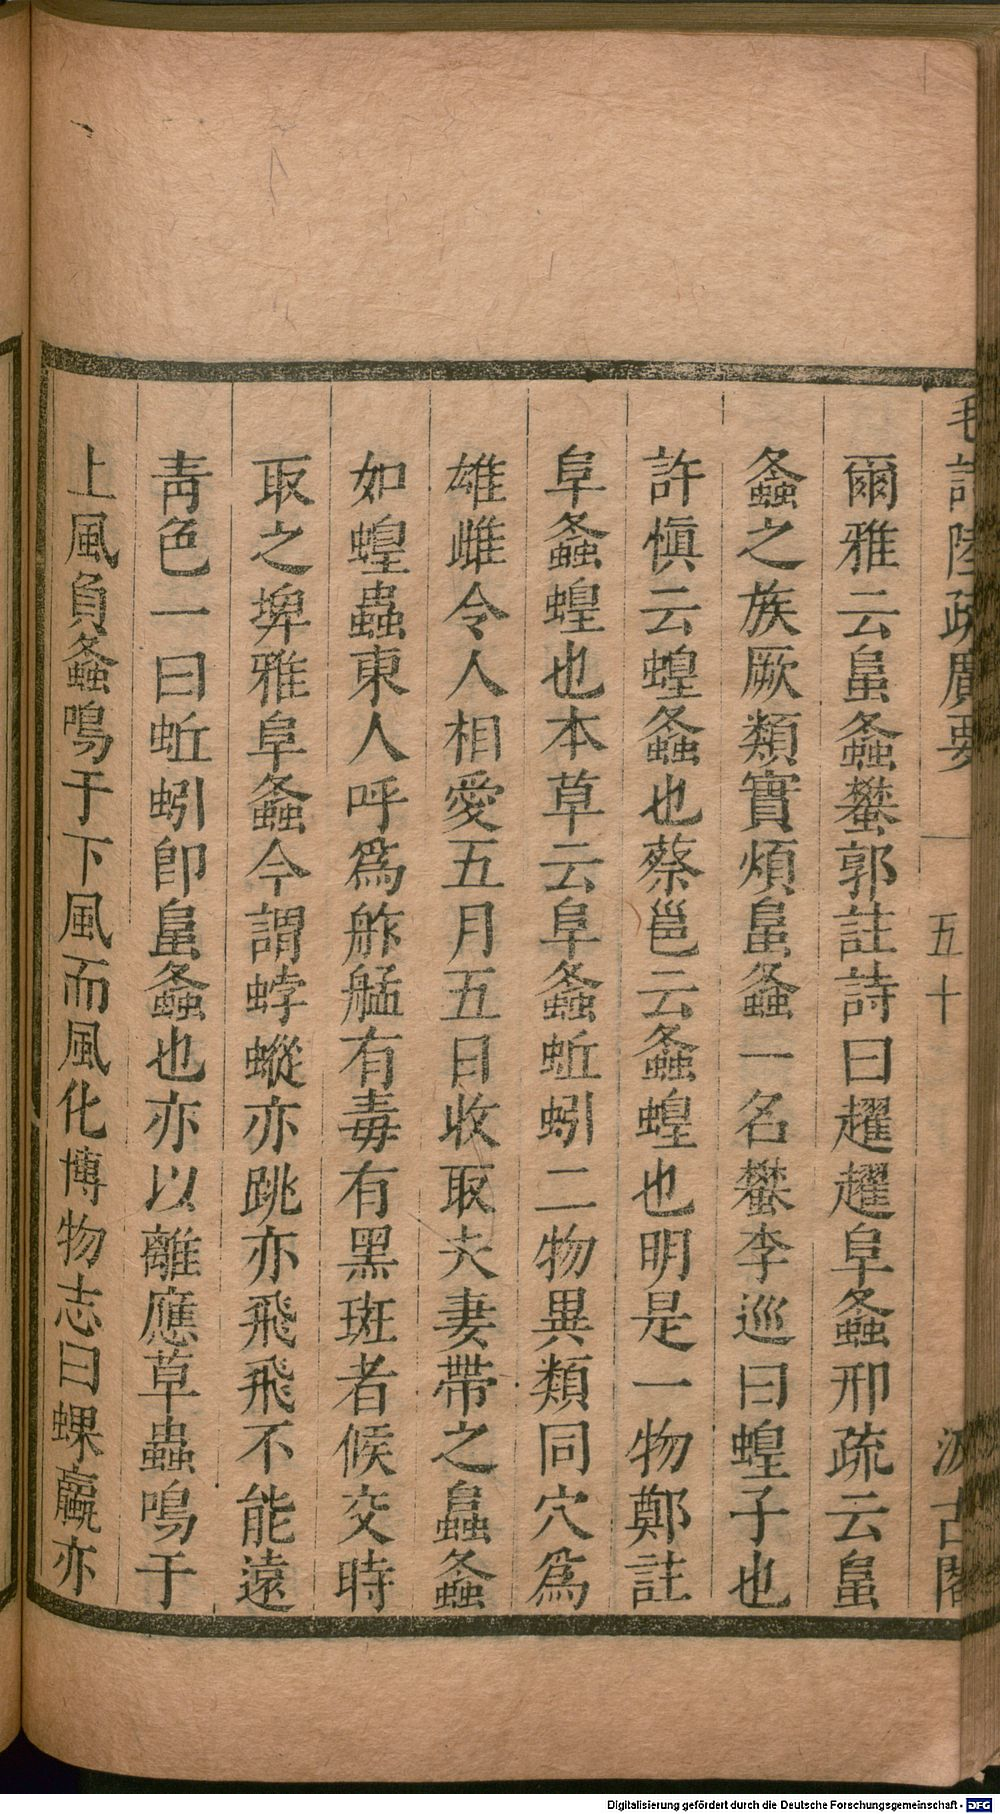 毛詩陸疏廣要 五十 汲古閣
爾雅云䘀螽蠜郭註詩曰趯趯阜螽邢疏云䘀
螽之族厥類實煩䘀螽一名蠜李巡曰蝗子也
許慎云蝗螽也蔡邕云螽蝗也明是一物鄭註
阜螽蝗也本草云阜螽蚯蚓二物異類同穴爲
雄雌令人相愛五月五日收取夫妻帶之䘀螽
如蝗蟲東人呼爲舴艋有毒有黑斑者候交時
取之埤雅阜螽今謂蜉蝬亦跳亦飛飛不能遠
靑色一曰蚯蚓卽䘀螽也亦以離應草蟲鳴于
上風負螽鳴于下風而風化博物志曰蜾蠃亦
Digitalisierung gefördert durch die Deutsche Forschungsgemeinschaft - DFG